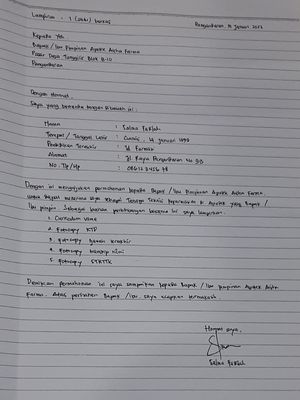 Lampiran : 1 (satu) berkas
Pangandaran, 14 Januari 2022
Kepada Yth.
Bapak / Ibu Pimpinan Apotek Aisha Farma
Pasar Desa Tunggilis Blok B-10
Pangandaran
Dengan Hormat,
Saya yang bertanda tangan dibawah ini :
Nama : Salma
Tempat / Tanggal Lahir : Ciamis, 14 Januari 1999
Pendidikan Terakhir : D3 Farmasi
Alamat : Jl. Raya Pangandaran No
No. Tlp/Hp :
Dengan ini mengajukan permohonan kepada Bapak / Ibu Pimpinan Apotek Aisha Farma,
untuk dapat menerima saya sebagai Tenaga Teknis Kefarmasian di Apotek yang Bapak /
Ibu pimpin. Sebagai bahan pertimbangan bersama ini saya lampirkan :
1. Curiculum Vitae
2. Fotocopy KTP
3. Fotocopy Ijazah terakhir
4. Fotocopy transkip nilai
5. Fotocopy STRTTK
Demikian permohonan ini saya sampaikan kepada Bapak / Ibu Pimpinan Apotek Aisha
Farma. Atas perhatian Bapak / Ibu, saya ucapkan terimakasih.
Hormat saya,
Salma